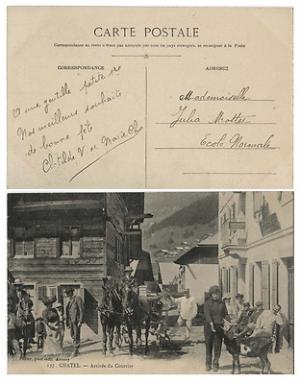 CARTE POSTALE
Correspondance au recto n'étant pas acceptée par tous les pays étrangers, se renseigner à la Poste
CORRESPONDANCE
A une gentille petite
Nos meilleurs souhaits
de bonne fête
Clotilde V. et Marie
ADRESSE
Mademoiselle
Julia
Ecole Normale
137. CHATEL. — Arrivée du Courrier